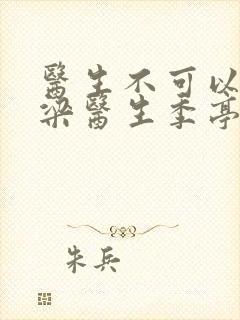 醫生不可以
梁醫生季亭
朱兵